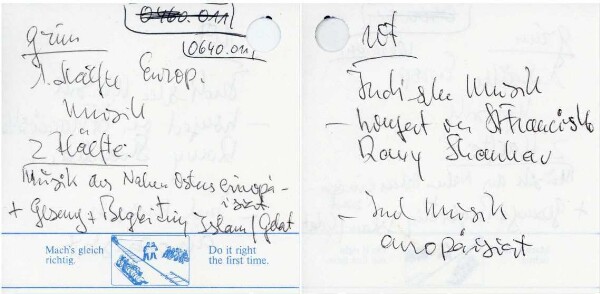 0460.011
0640.011
grün
1. Hälfte Europ.
Musik
2 Hälfte:
Musik des Nahen Ostens europä-
isiert
+ Gesang + Begleitung Islam / Gebet
Mach's gleich
richtig.
Do it right
the first time.
rot
Indischen Musik
- Konzert von St Francisko
Ravy Shankar
- Ind Musik
europäisiert